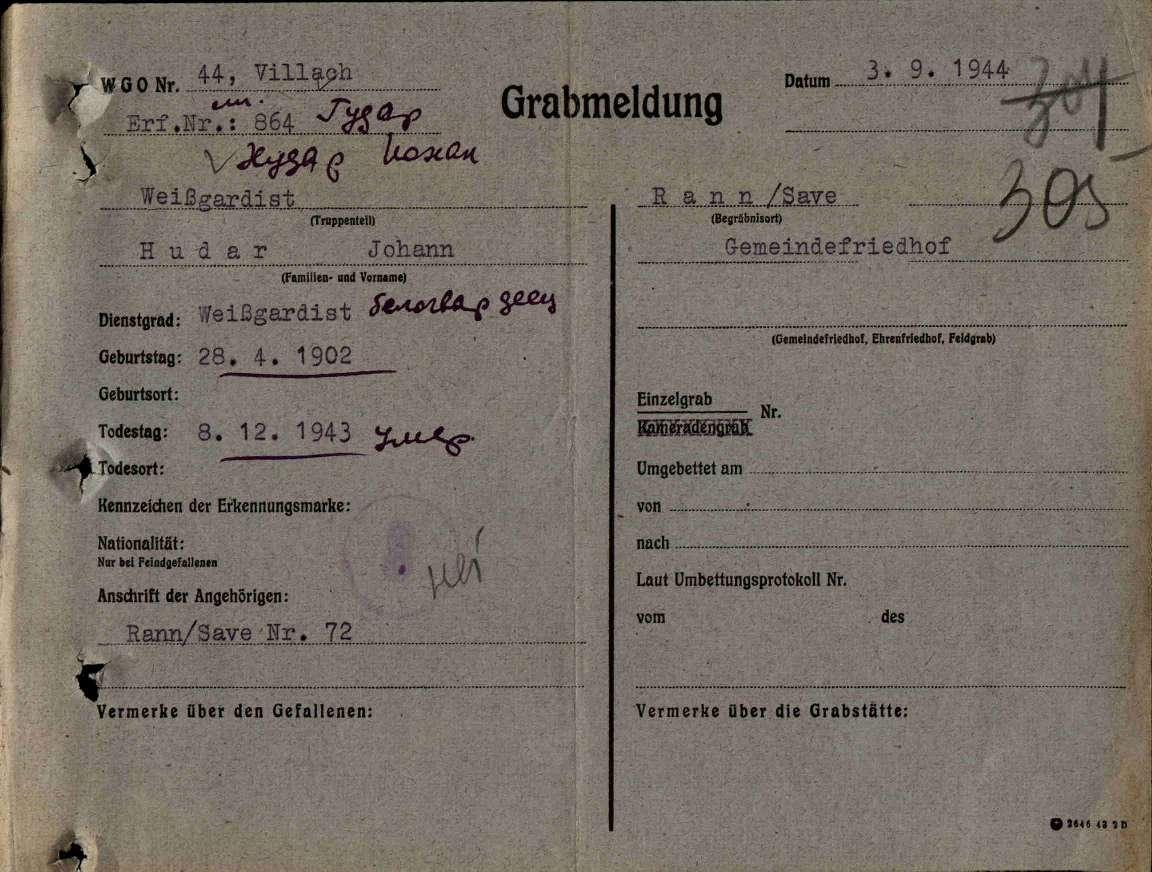 WGO Nr. 44, Villach
Grabmeldung
Datum 3. 9. 1944
304
Erf.Nr.: 864 Гудар
Худар Иохан
305
Weißgardist
(Truppenteil)
Hudar Johann
(Familien- und Vorname)
Dienstgrad: Weißgardist белогвардеец
Geburtstag: 28. 4. 1902
Geburtsort:
Todestag: 8. 12. 1943 умер.
Todesort:
Kennzeichen der Erkennungsmarke:
Nationalität:
Nur bei Feindgefallenen
Anschrift der Angehörigen:
Rann/Save Nr. 72
Vermerke über den Gefallenen:
Rann/Save
(Begräbnisort)
Gemeindefriedhof
(Gemeindefriedhof, Ehrenfriedhof, Feldgrab)
Einzelgrab
Nr.
Kameradengrab
Umgebettet am
von
nach
Laut Umbettungsprotokoll Nr.
vom des
Vermerke über die Grabstätte:
2646 43 2 D